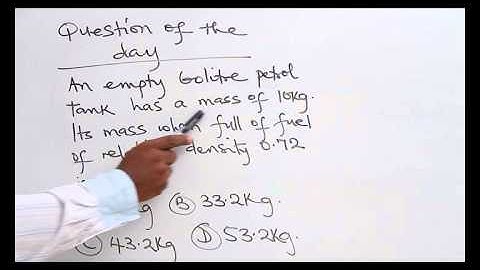 Question of the
day
An empty 60litre petrol
tank has a mass of 10kg.
Its mass when full of fuel
of density 0.72
kg B 33.2kg.
C 43.2kg D 53.2kg.